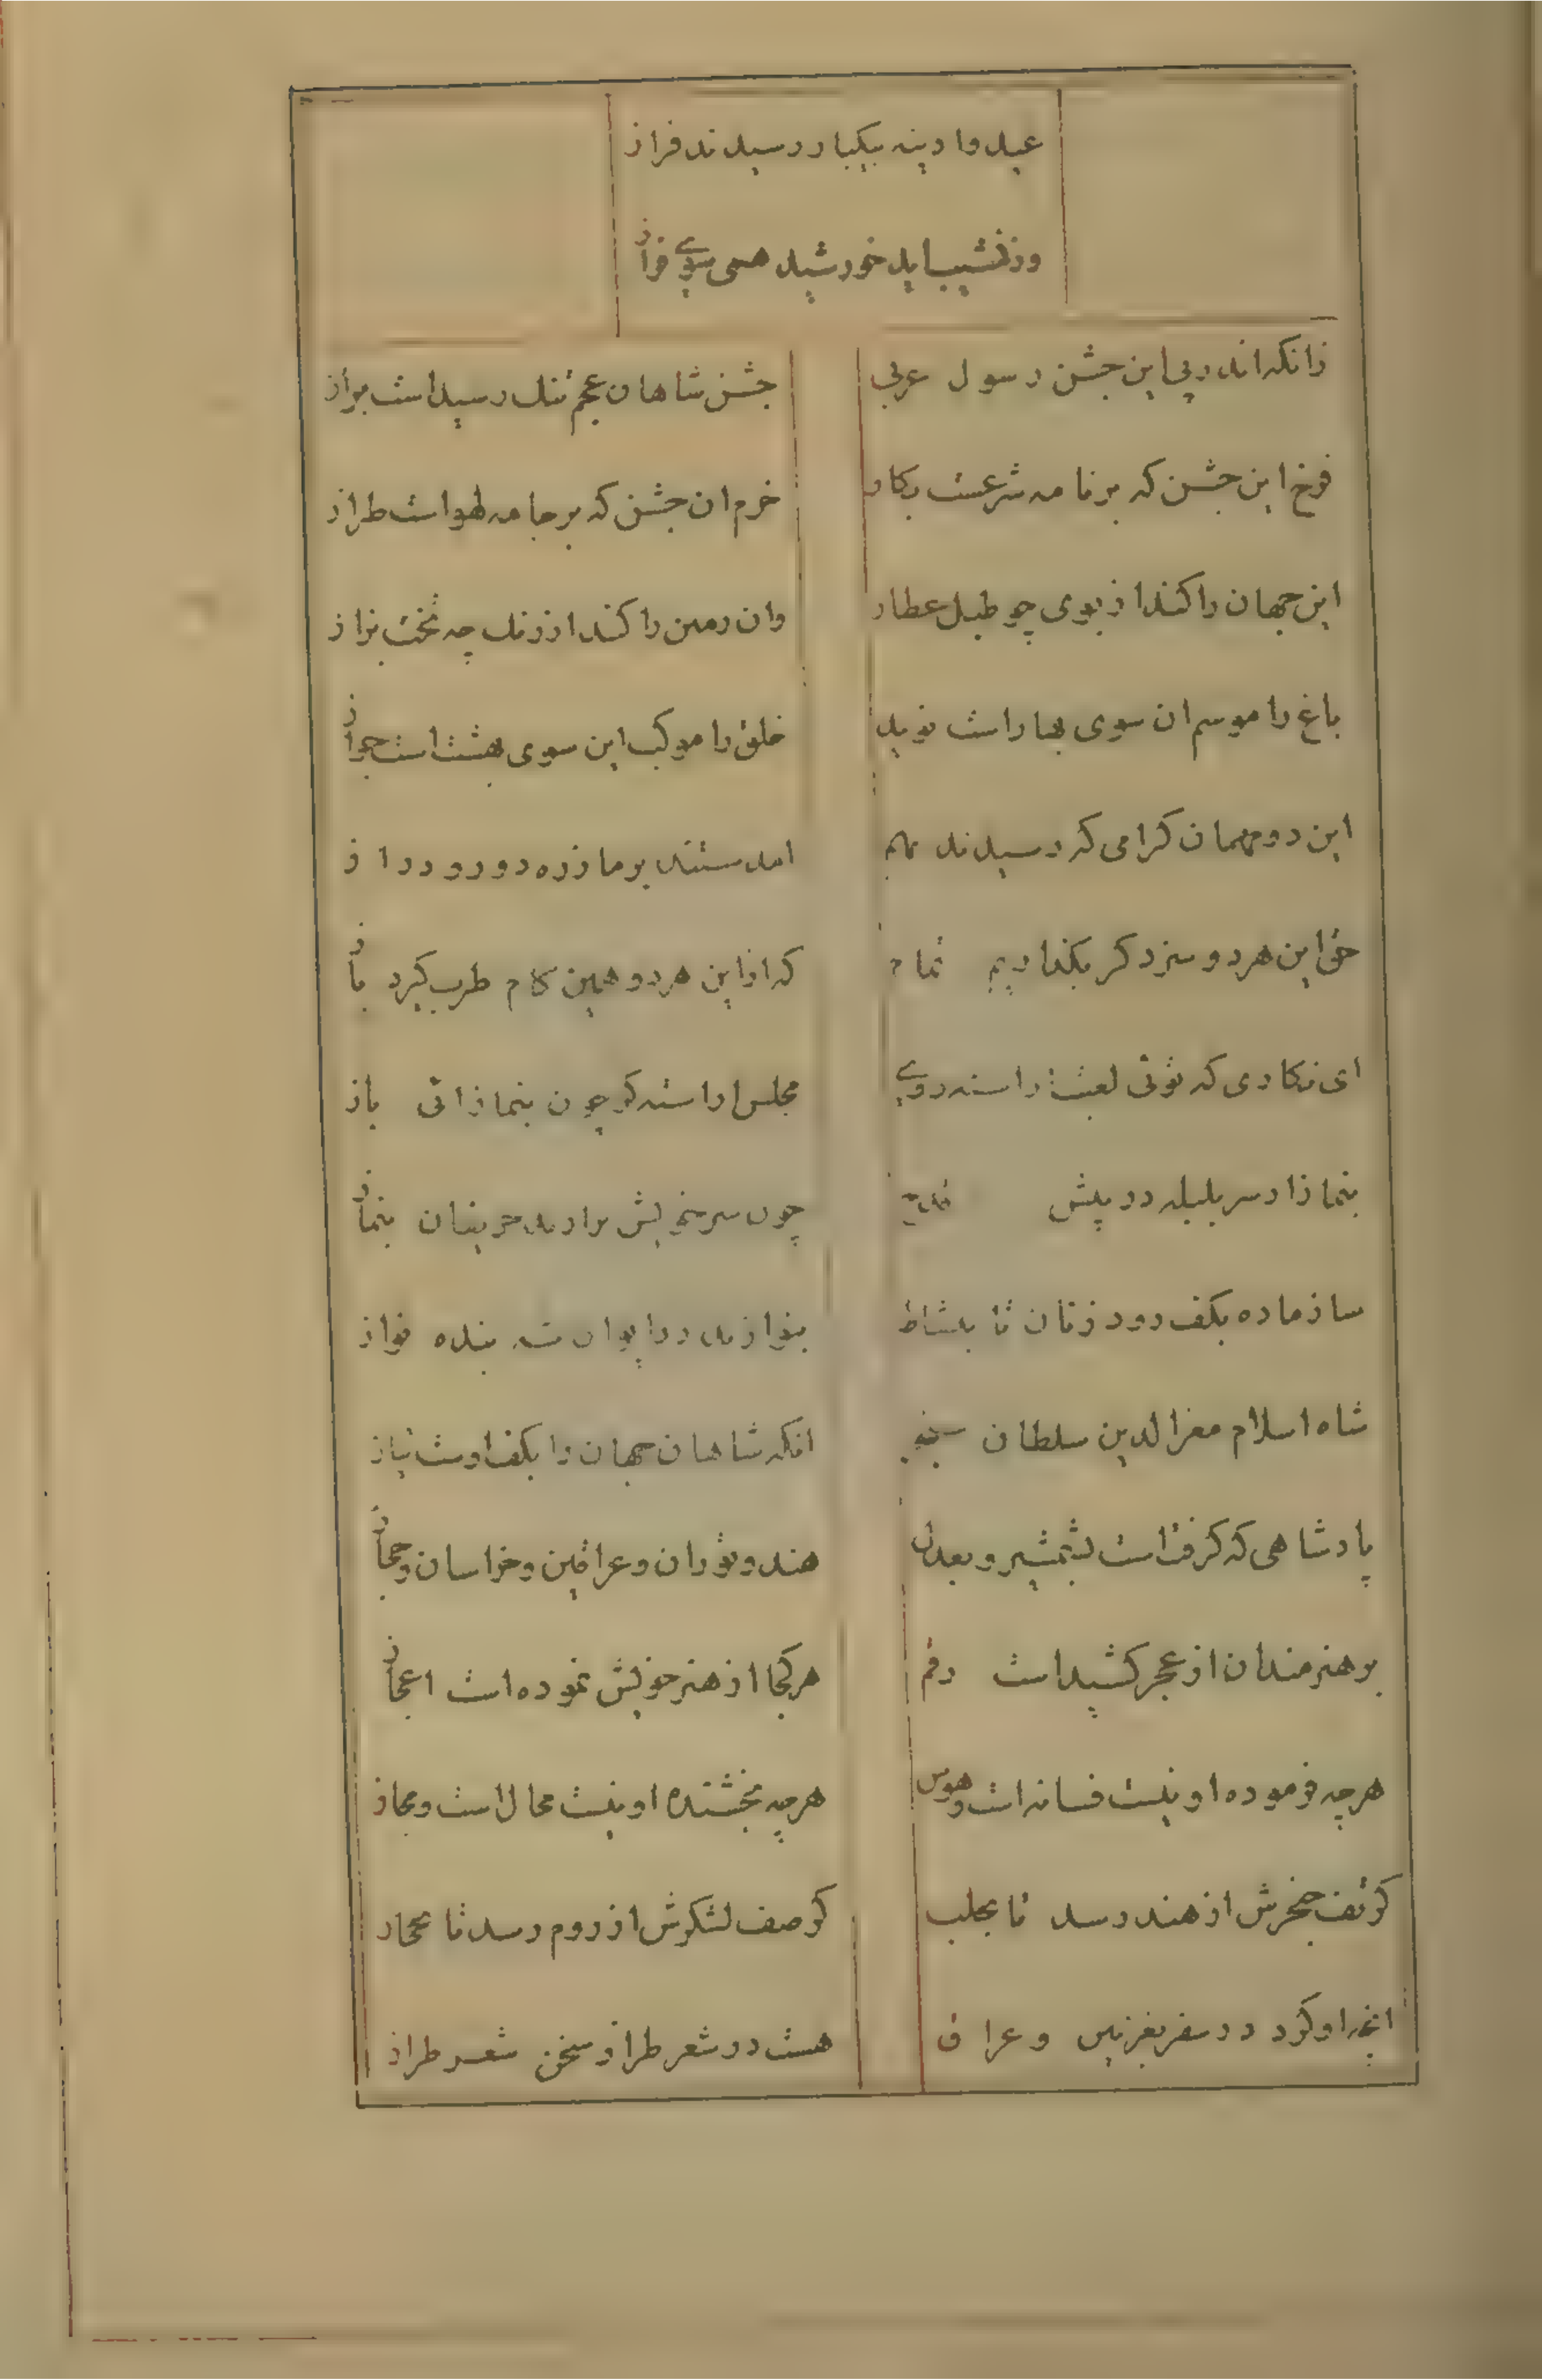 عید و ادینه بیکبار رسیدند فراز
وز نشیب اید خورشید همی سوی فراز
زانکه اندر پی این جشن رسول عربی
جشن شاهان عجم تنک رسید است براز
فرخ این جشن که بر نامه شرعست نکار
خرم ان جشن که بر جامه لهواست طراز
این جهان را کند از بوی چو طبل عطار
وان زمین را کند از رنک چه تخت بزاز
باغ را موسم ان سوی بهاراست نوید
خلق را موکب این سوی بهشت است جواز
این دو مهمان کرامی که رسیدند بهم
امدستند بر ما ز ره دور و دراز
حق این هر دو سزد کر بکذاریم تمام
که از این هر دو همین کام طرب کیرد باز
ای نکاری که توئی لعبت اراسته روی
مجلس اراسته کن چون بنماز ائی باز
بنماز ار سر بلبله در پیش قدح
چون سر خویش برارند حریفان بنماز
ساز ما ده بکف رود زنان تا بنشاط
بنوازند در ایوان شه بنده نواز
شاه اسلام معزالدین سلطان سنجر
انکه شاهان جهان را بکف اوست نیاز
پادشاهی که کرفت است بشمشیر و بعدل
هند و توران و عراقین و خراسان و حجاز
بر هنرمندان از عجز کشید است رقم
هر کجا از هنر خویش نموده است اعجاز
هرچه فرموده او نیست فسانه است و هوس
هرچه بخشنده او نیست محال است و مجاز
کر تف خنجرش از هند رسد تا بحلب
کر صف لشکرش از روم رسد تا بحجار
انچه او کرد در سفر بغزنین و عراق
هست در شعر طراز سخن شعر طراز